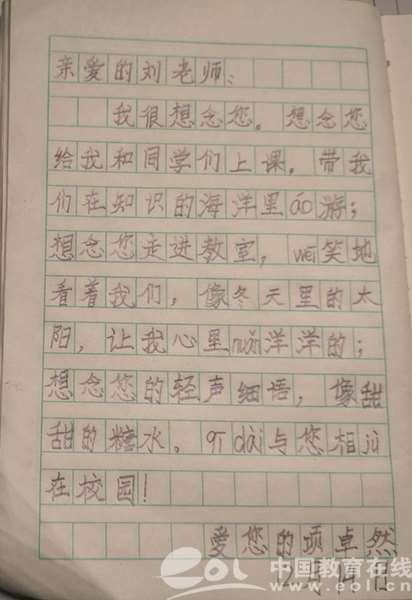 亲爱的刘老师：
我很想念您。想念您
给我和同学们上课。带我
们在知识的海洋里áo游；
想念您走进教室，wēi笑地
看着我们，像冬天里的太
阳，让我心里nuǎn洋洋的；
想念您的轻声细语，像甜
甜的糖水。qī dài与您相jù
在校园！
爱您的项卓然
中国教育在线
www.eol.cn